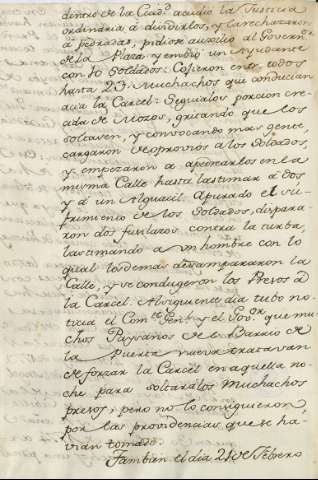 dentro de la Ciud.^d acudia la Justicia
ordinaria à dividirlos, y la rechazaron
à pedradas, pidiose auxilio al Govern.^or
de la Plaza y embió un Ayudante
con 40 Soldados: Cogieron entre todos
hasta 23. Muchachos que conducian
à la Carcel: Seguialos porcion cre-
cida de Mozos, gritando que los
soltasen, y convocando mas gente,
cargaron de oprovios a los Soldados,
y empezaron a apedrearlos en la
misma Calle hasta lastimar à dos
y à un Alguacil. Apurado el su-
frimiento de los Soldados, dispara-
ron dos fusilazos contra la turba,
lastimando a un hombre con lo
qual los demas desampararon la
Calle, y se condugeron los Presos à
la Carcel. Al siguiente dia tubo no-
ticia el Com.^te Gen.^l y el Gov.^or que mu-
chos Paysanos de el Barrio de
la Puerta nueva tratavan
de forzar la Carcel en aquella no-
che para soltar a los Muchachos
presos, pero no lo consiguieron
por las providencias que se ha-
vian tomado.
Tambien el dia 21 de Febrero